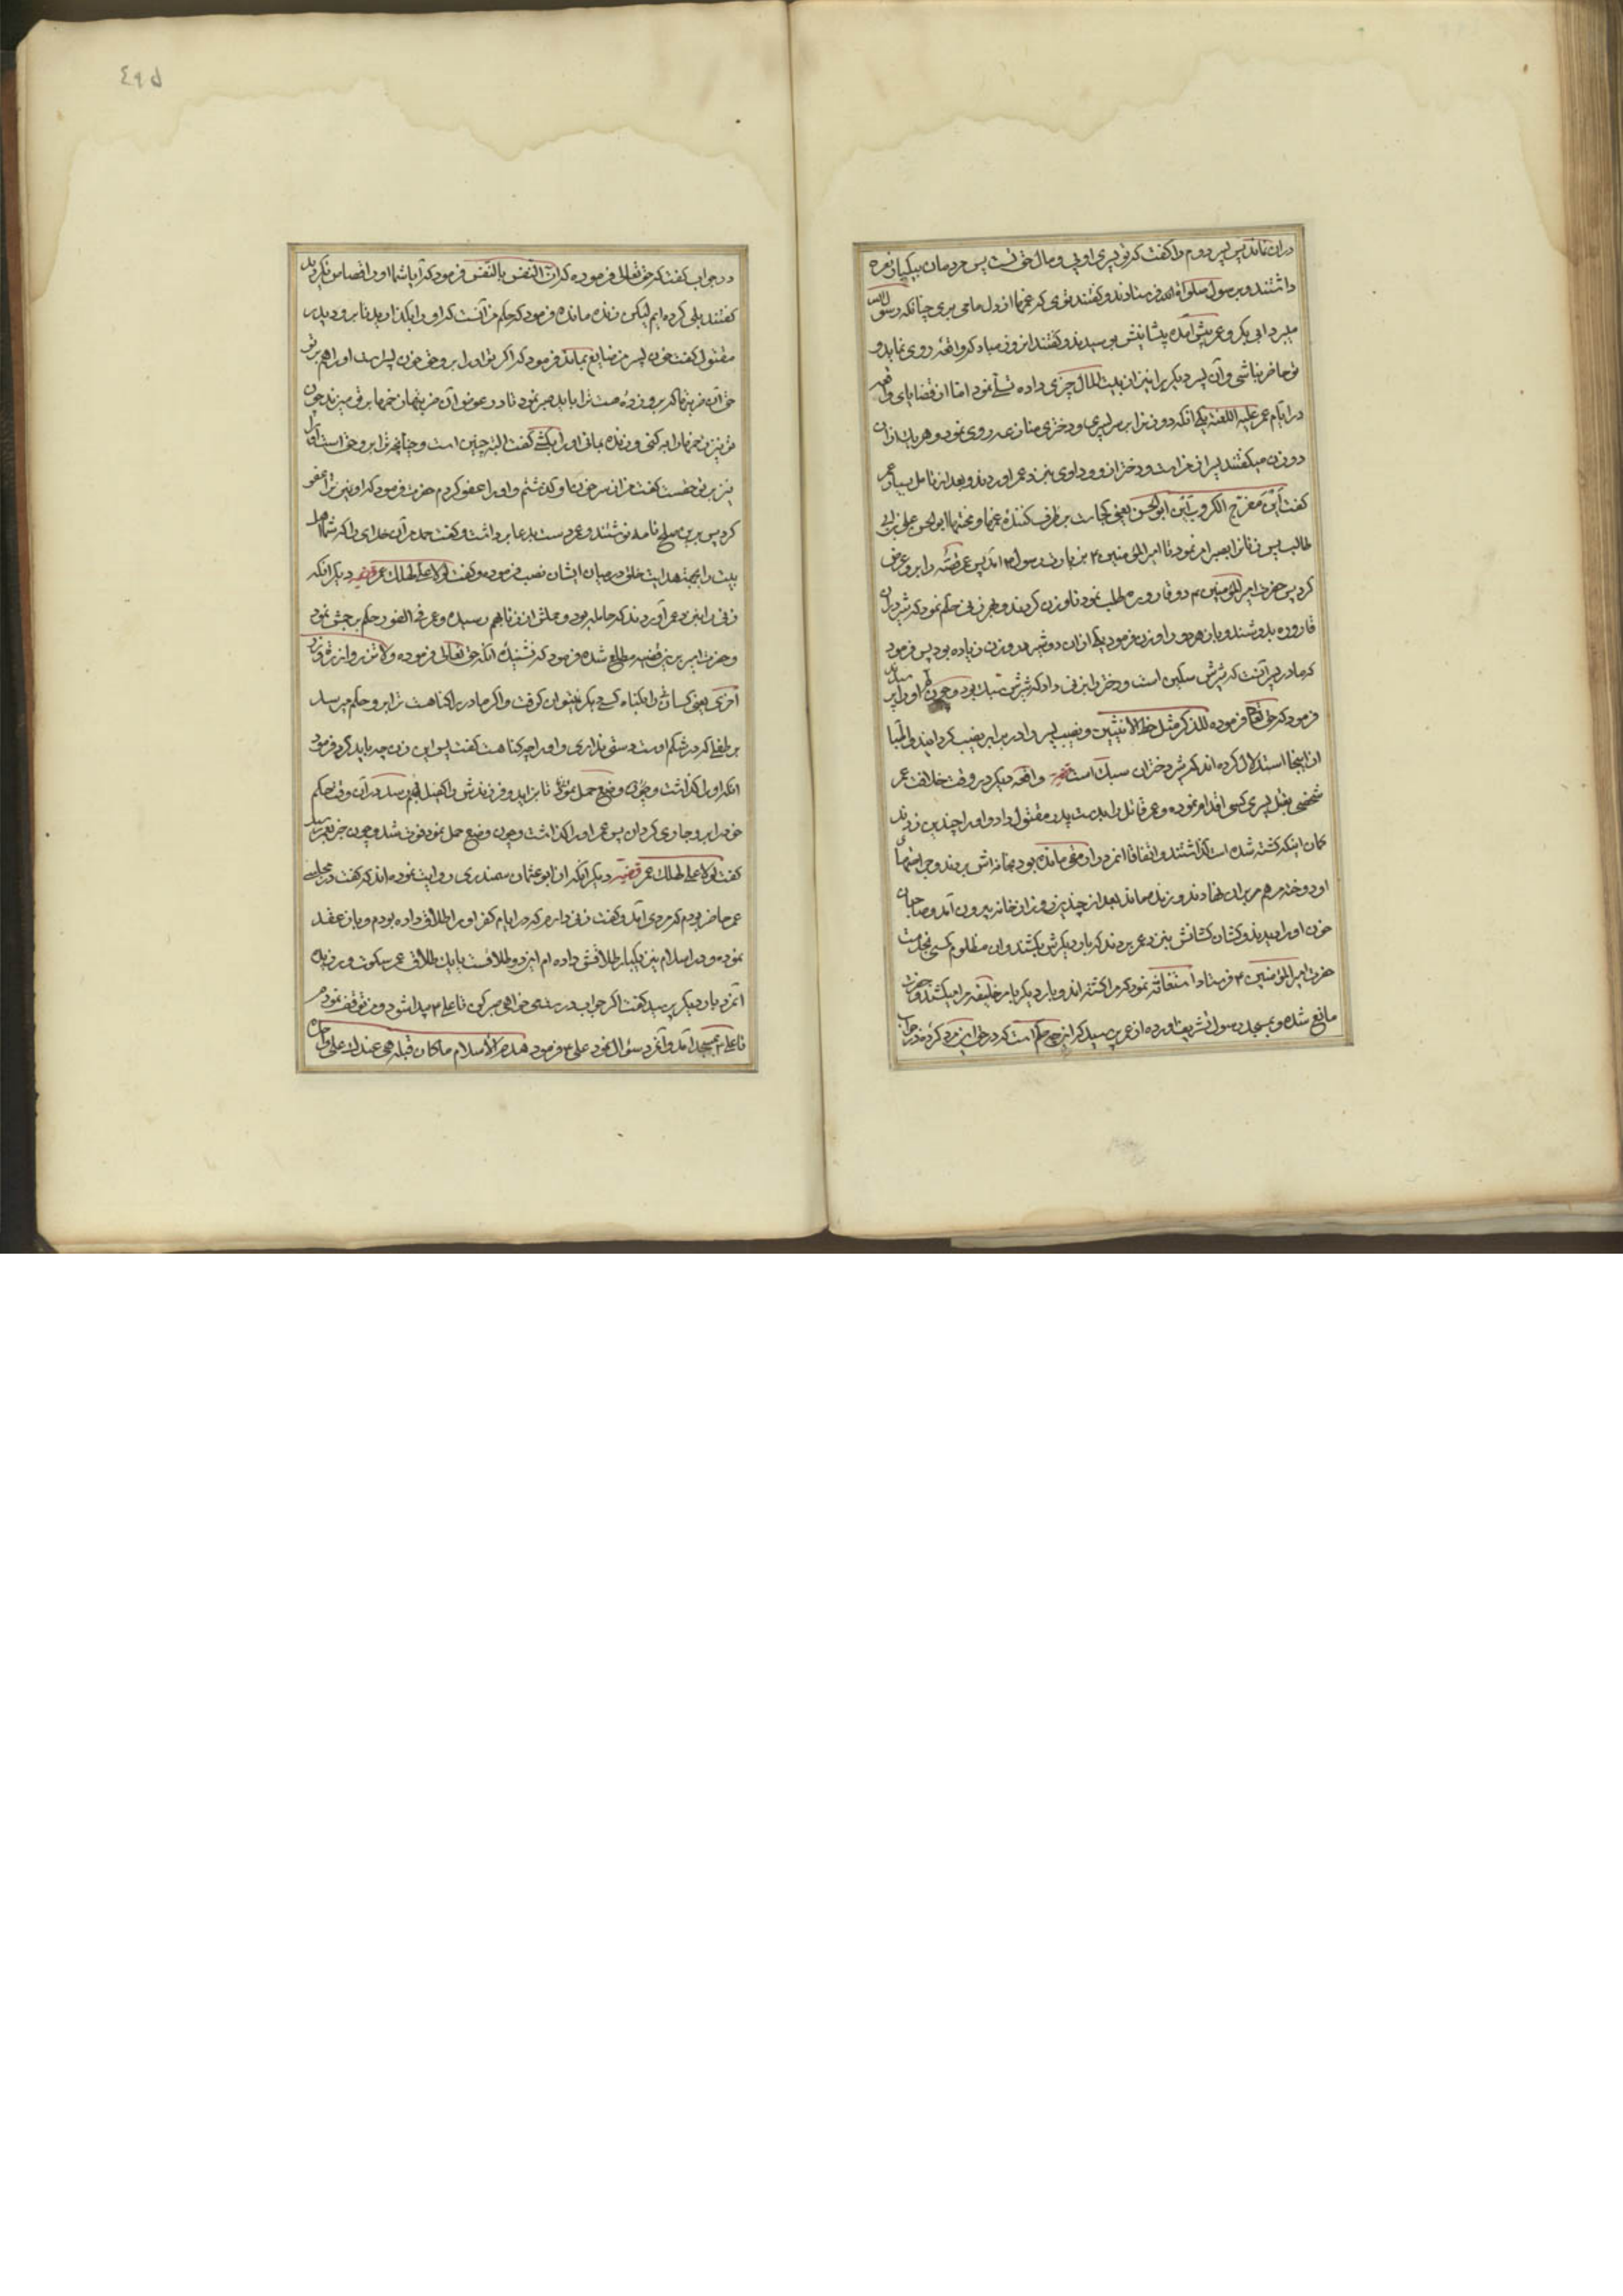 در آن نماند پس پسر دوم را گفت که تو پسر اویی و مال حق تست پس مردمان بیکبار نعره
داشتند و بر رسول صلوات فرستادند و گفتند توی که غمها از دل ما می بری چنانکه رسول الله
میبرد ابی بکر و عمر پیش آمده پیشانیش بوسیدند و گفتند از و نی مباد که واقعه روی نماید و
تو حاضر نباشی و آن پسر دیگر را نیز از بیت المال چیزی داده تسلی نمود اما از قضایای
در ایام عمر علیه اللعنه یکی آنکه دو زن را بر سر پسری و دختری منازعه روی نمود و هر یک از آن
دو زن میگفتند پسر از من است و دختر از و داوری بنزد عمر آوردند و بعد از تأمل بسیار عمر
گفت این مفرج الکروب این ابو الحسن یعنی کجاست برطرف کننده غمها و محنتها ابو الحسن علی بن ابی
طالب پس زنان را بصبر امر نمود تا امیر المؤمنین ع بزیارت رسول ص آمد پس عمر قصه را برو عرض
کرد پس حضرت امیر المؤمنین ع دو قاروره طلب نمود تا وزن کردند و هر زنی حکم نمود که شیر در آن
قاروره بدوشند و باز هر دو را وزن فرمود یکی از آن دو شیر در وزن زیاده بود پس فرمود
که مادر پسر آنست که شیرش سنگین است و دختر را بزنی داد که شیرش سبک بود و چون او را
فرمود که حق تعالی فرموده للذکر مثل حظ الانثیین و نصیب پسر را دو برابر نصیب گردانید و اطبا
از اینجا استدلال کرده اند که شیر دختران سبک است قضیه واقعه دیگر در وقت خلافت عمر
شخصی بقتل پسر کسی اقدام نموده و عمر قاتل را بدست پدر مقتول داد و او را چندین زدند
گمان اینکه کشته شده است گذاشتند و اتفاقا آنمرد را رمقی مانده بود بخانه اش بردند و جراحتهای
او دوخته مرهم بر آن نهادند و زنده ماند بعد از چند روز از خانه بیرون آمد و صاحبان
خون او را دیدند و کشان کشانش بنزد عمر بردند که بار دیگرش بکشند و آن مظلوم کسی بخدمت
حضرت امیر المؤمنین ع فرستاد و استغاثه نمود که مرا کشته اند و بار دیگر بامر خلیفه مرا میکشند و حضرت
مانع شده و بمسجد رسول تشریف آورده از عمر پرسید که این چه حکم است که در حق این مرد کرده عمر
در جواب گفت که حق تعالی فرموده که ان النفس بالنفس فرمود که آیا شما او را قصاص نکردید
گفتند بلی کرده ایم لیکن زنده مانده فرمود که حکم من آنست که او را بگذارید تا برود پدر
مقتول گفت خون پسر من ضایع بماند فرمود که اگر تو او را بر و حق خون پسر است او را هم بر تو
حق آن ضربتها که برو زده هست ترا باید صبر نمود تا در عوض آن ضربتها زخمها بر تو میزند چون
تو نیز زخمها را به کنی و زنده بمانی او را بکشی گفت البته چنین است و چنانچه ترا برو حق است او را
نیز بر تو حقست گفت من از سر خون او گذشتم و او را عفو کردم حضرت فرمود که او نیز ترا عفو
کرد پس برین صلح نامه نوشتند و عمر دست بدعا برداشت و گفت حمد مر آن خدای را که شما اهل
بیت را بجهة هدایت خلق در میان ایشان نصب فرموده و گفت لولا علی لهلک عمر قضیه دیگر آنکه
زنی را بنزد عمر آوردند که حامله بود و حملش از زنا بهم رسیده و عمر فی الفور حکم برجمش نمود
و حضرت امیر برین قضیه مطلع شده فرمود که نشنیده آنکه حق تعالی فرموده ولا تزر وازرة وزر
اخری یعنی کسان را بگناه کسی دیگر نمیتوان گرفت و اگر مادر را گناهست ترا برو حکم میرسد
بر طفلی که در شکم اوست دستی نداری و او را چه گناهست گفت پس این زن چه باید کرد فرمود
آنکه او را گذاشت و چون وضع حمل شود تا بزاید و فرزندش را کفیل بهم رسد در آن وقت حکم
خود را برو جاری گردان پس عمر او را گذاشت و چون وضع حمل نمود فوت شد و چون خبر بعمر رسید
گفت لولا علی لهلک عمر قضیه دیگر آنکه از ابو عثمان سهندری روایت نموده اند که گفت در مجلس
عمر حاضر بودم که مردی آمد و گفت زنی دارم که در ایام کفر او را طلاق داده بودم و باز عقد
نموده و در اسلام نیز یکبار طلاقش داده ام این دو طلاقست یا یک طلاق عمر سکوت ورزیده
آنمرد بار دیگر پرسید گفت اگر جواب درستی خواهی صبر کن تا علی ع پیدا شود و من توقف نمودم
تا علی ع بمسجد آمد و آنمرد سؤال نمود علی ع فرمود هدم الاسلام ما کان قبله هی عندک علی واحدة